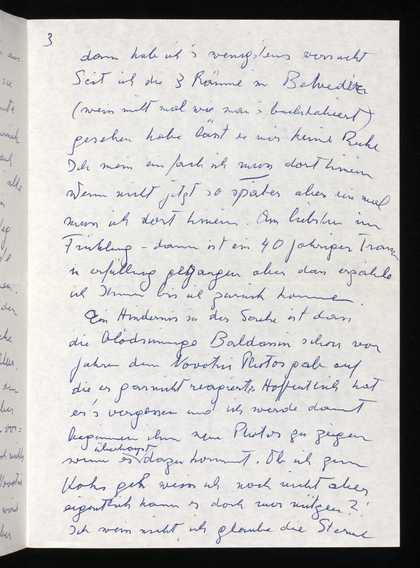 3
dann hab ich's wenigstens versucht
Seit ich die 3 Räume im Belvedere
(weiss nicht mal wie man's buchstabiert)
gesehen habe lässt es mir keine Ruhe
Ich mein einfach ich muss dort hinein
Wenn nicht jetzt so später aber einmal
muss ich dort hinein. Am liebsten im
Frühling - dann ist ein 40 jähriger Traum
in erfüllung gegangen aber das erzähle
ich Ihnen bis ich zurück komme.
Ein Hindernis in der Sache ist dass
die blödsinnige Baldassin schon vor
Jahren dem Novotni Photos gab auf
die er garnicht reagierte. Hoffentlich hat
er's vergessen und ich werde damit
beginnen ihm neue Photos zu zeigen
wenn es überhaupt dazu kommt. Ob ich zum
geh weiss ich noch nicht aber
eigentlich kann es doch nur nützen?!
Ich weiss nicht, ich glaube die Sterne